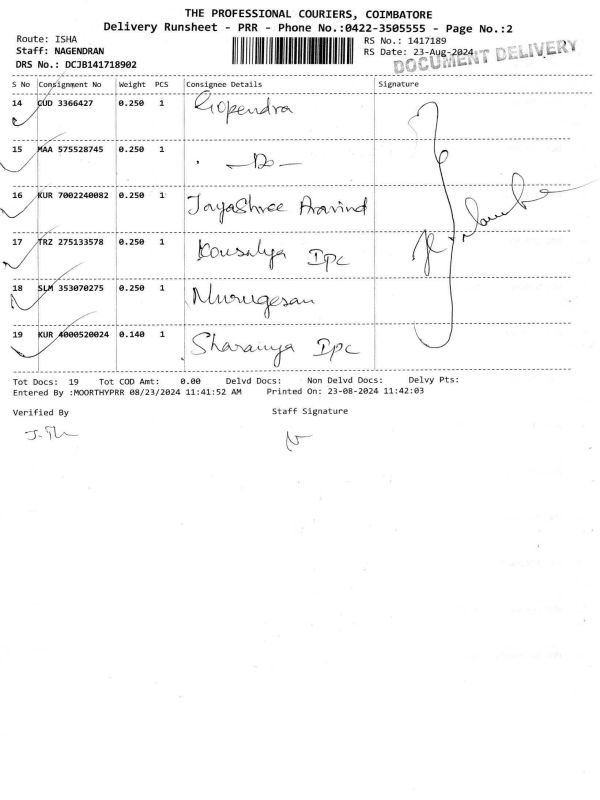 THE PROFESSIONAL COURIERS, COIMBATORE
Delivery Runsheet - PRR - Phone No.:0422-3505555 - Page No.:2
Route: ISHA RS No.: 1417189
Staff: NAGENDRAN RS Date: 23-Aug-2024
DRS No.: DCJB141718902 DOCUMENT DELIVERY
S No Consignment No Weight PCS Consignee Details Signature
14 CUD 3366427 0.250 1 Gopendra
15 MAA 575528745 0.250 1 - Do -
16 KUR 7002240082 0.250 1 Jayashree Aravind
17 TRZ 275133578 0.250 1 Kousalya Ipc
18 SLM 353070275 0.250 1 Murugesan
19 KUR 4000520024 0.140 1 Sharanya Ipc
Tot Docs: 19 Tot COD Amt: 0.00 Delvd Docs: Non Delvd Docs: Delvy Pts:
Entered By :MOORTHYPRR 08/23/2024 11:41:52 AM Printed On: 23-08-2024 11:42:03
Verified By Staff Signature